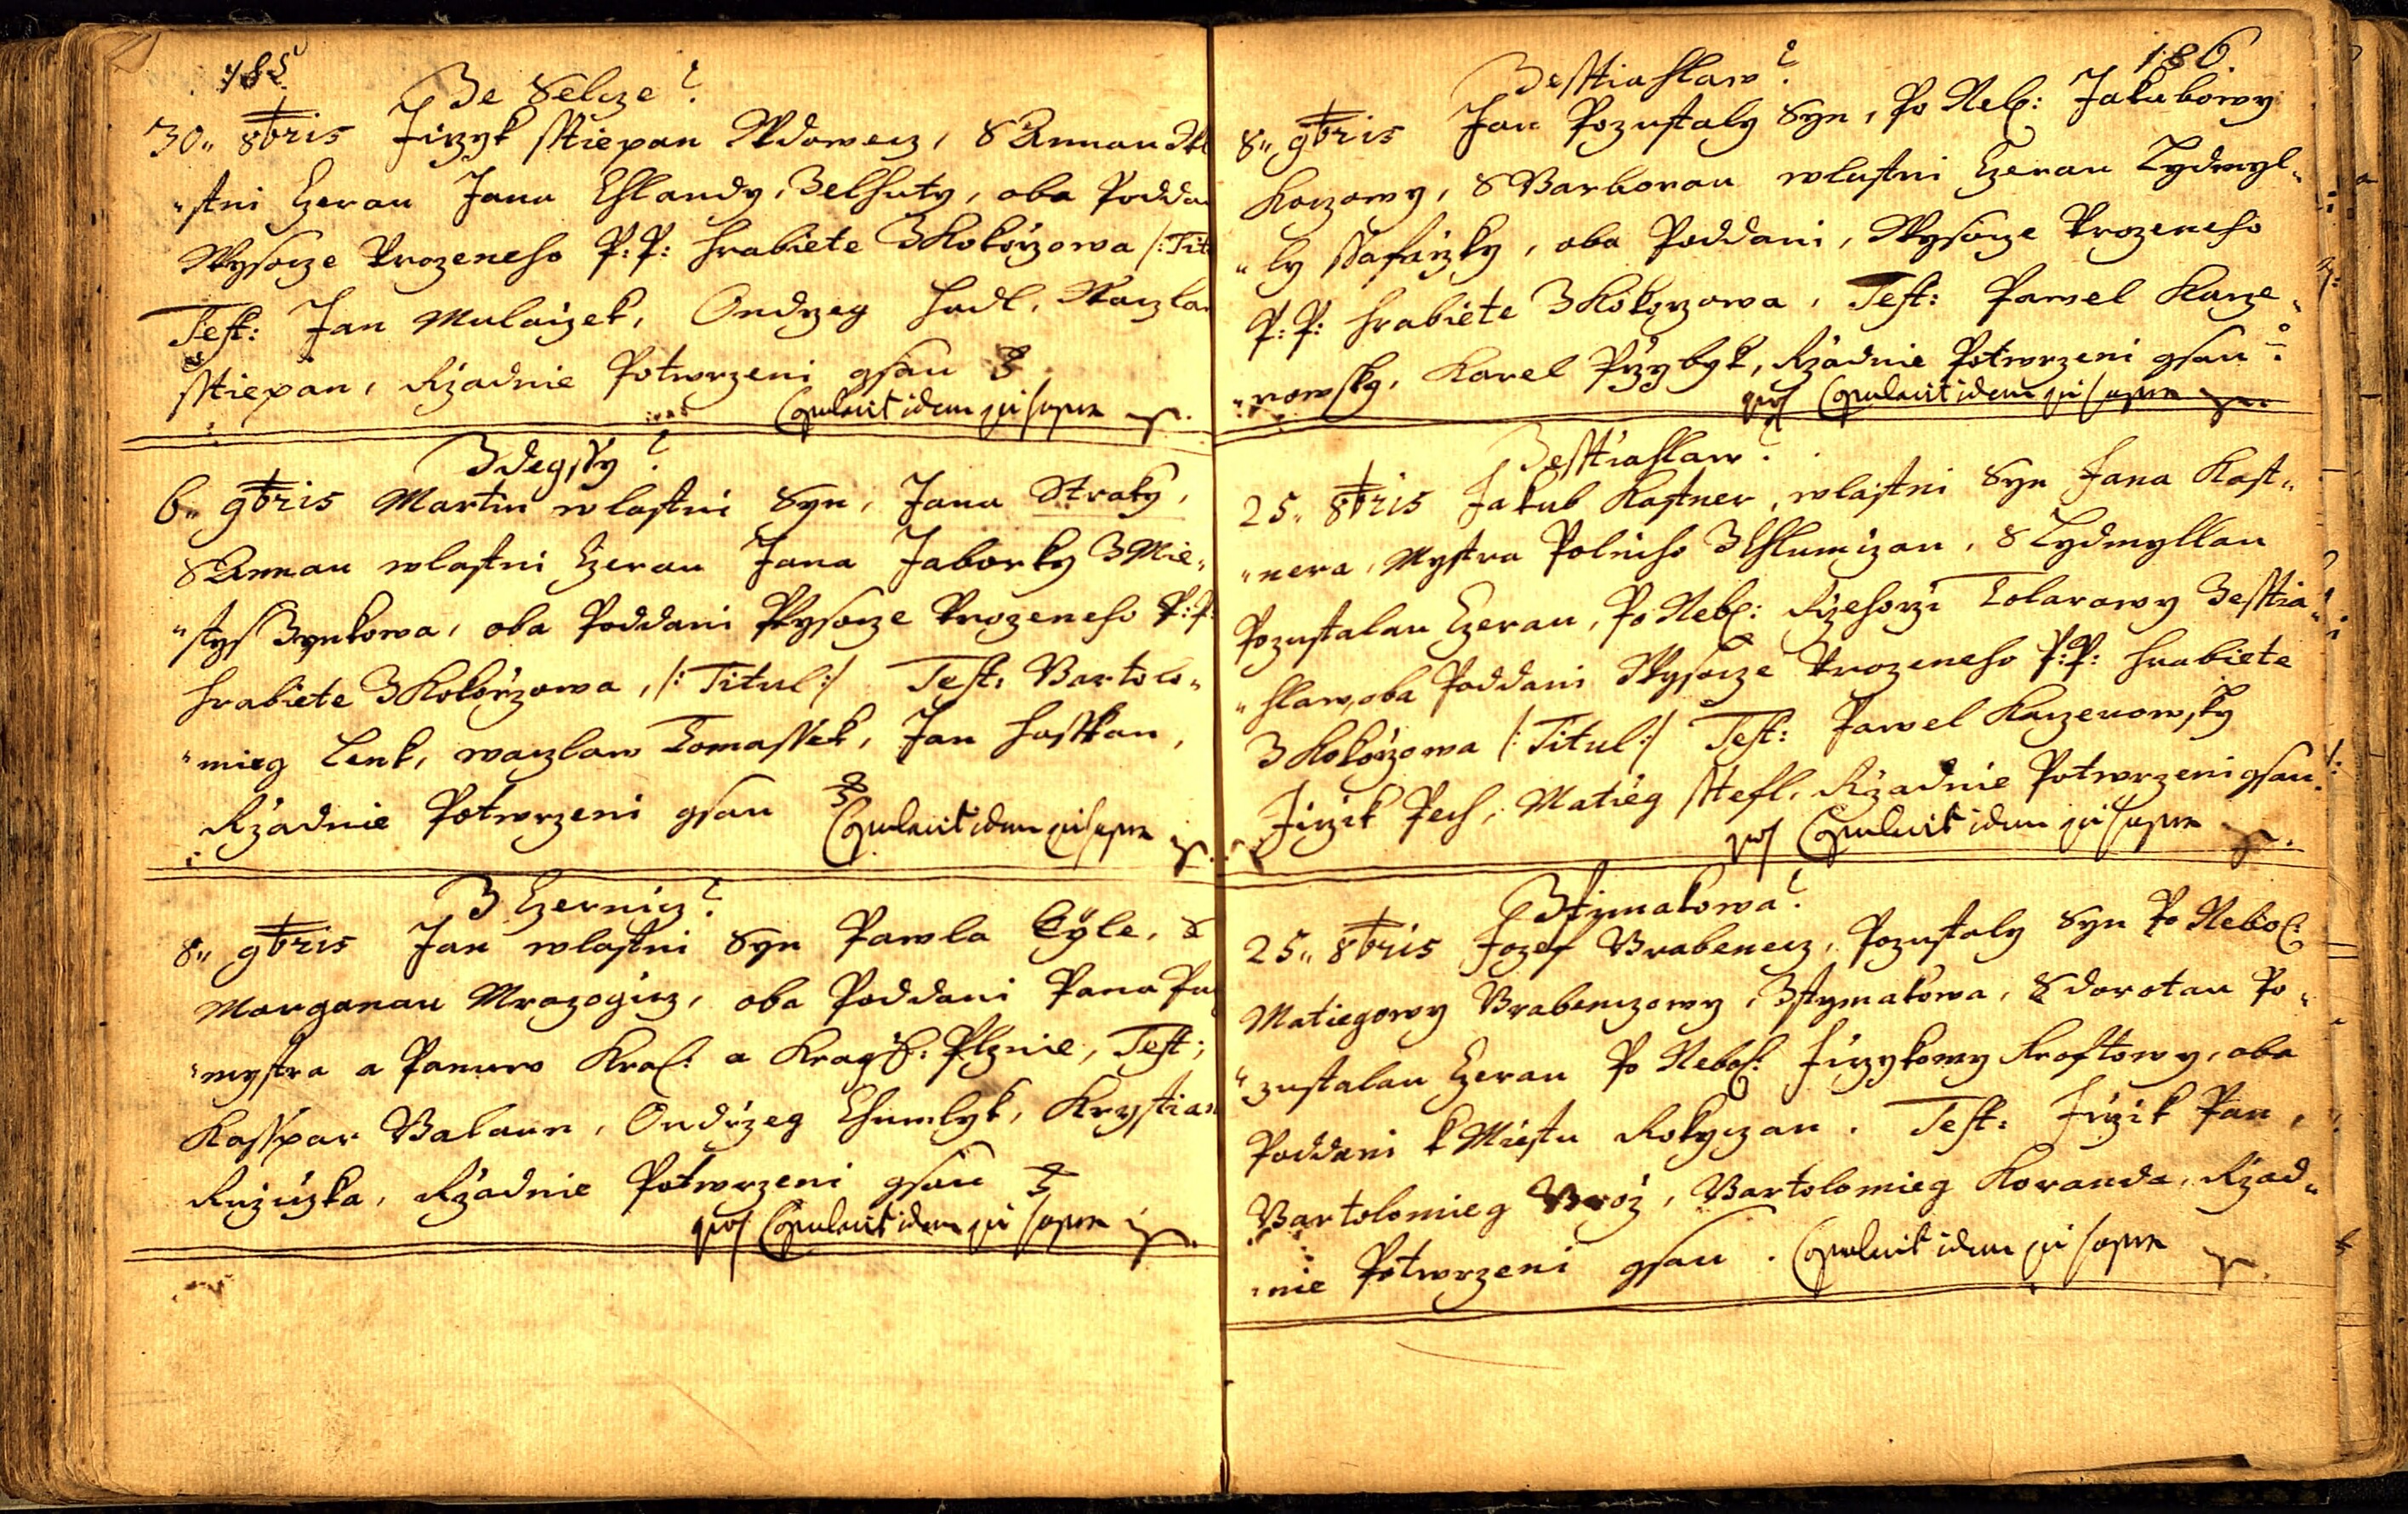 185
Ze Selcze
30. 8bris Jirzyk Sstiepan Wdowecz, S Annau Wl
stni Czerau Jana Chlandy, Zelhuty, oba Podda
Wysocze Urozeneho P: P: Hrabiete Z Kokorzowa /: Tit
Test: Jan Mulaczek, Ondrzeg Hodl, Waczla
Sstiepan, Rzadnie Potwrzeni gsau
Copulavit idem qui supra
Zdegssy
6. 9bris Martin wlastni Syn, Jana Straky,
S Annau wlastni Czerau Jana Jaborky Z Mie
stys Zynkowa, oba Poddani Wysocze Urozeneho P: P:
Hrabiete Z Kokorzowa, /: Titul :/ Test: Bartolo
mieg Lenk, waczlaw Tomassek, Jan Hasskan,
Rzadnie Potwrzeni gsau
Copulavit idem qui supra
Z Czernicz
8. 9bris Jan wlastni Syn Pawla Cyle, S
Marganau Mrazogicz, oba Poddani Pana Pu
mystra a Panuw Kral: a Kragsk: Plznie, Test:
Kasspar Balaun, Ondrzeg Chumlyk, Krystian
Ruziczka, Rzadnie Potwrzeni gsau
quos Copulavit idem qui supra
186.
Zesstiahlaw
8. 9bris Jan Pozustaly Syn, Po Neb: Jakubowy
Koczowy, S Barborau wlastni Czerau Lydmyl
ly Ssafarzky, oba Poddani, Wysocze Urozeneho
P: P: Hrabiete Z Kokorzowa, Test: Pawel Kacze
rowsky, Karel Przybyk, Rzadnie Potwrzeni gsau
quos Copulavit idem qui supra
Zesstiahlaw
25. 8bris Jakub Kastner, wlastni Syn Jana Kast
nera, Mystra Polniho Z Chlumczan, S Lydmyllau
Pozustalau Czerau, Po Neb: Rzehorzi Tolarowy Zesstia
hlaw, oba Poddani Wysocze Urozeneho P: P: Hrabiete
Z Kokorzowa /: Titul :/ Test: Pawel Kaczerowsky
Jirzik Pech, Matieg Sstefl, Rzadnie Potwrzeni gsau
quos Copulavit idem qui supra
Zstymakowa
25. 8bris Jozef Brabenecz, Pozustaly Syn Po Nebos:
Matiegowy Brabenczowy, Zstymakowa, S Dorotau Po
zustalau Czerau Po Nebos: Jirzykowy Kroftowy, oba
Poddani k Miestu Rokyczan. Test: Jirzik Pan,
Bartolomieg Broz, Bartolomieg Koranda, Rzad
nie Potwrzeni gsau. Copulavit idem qui supra